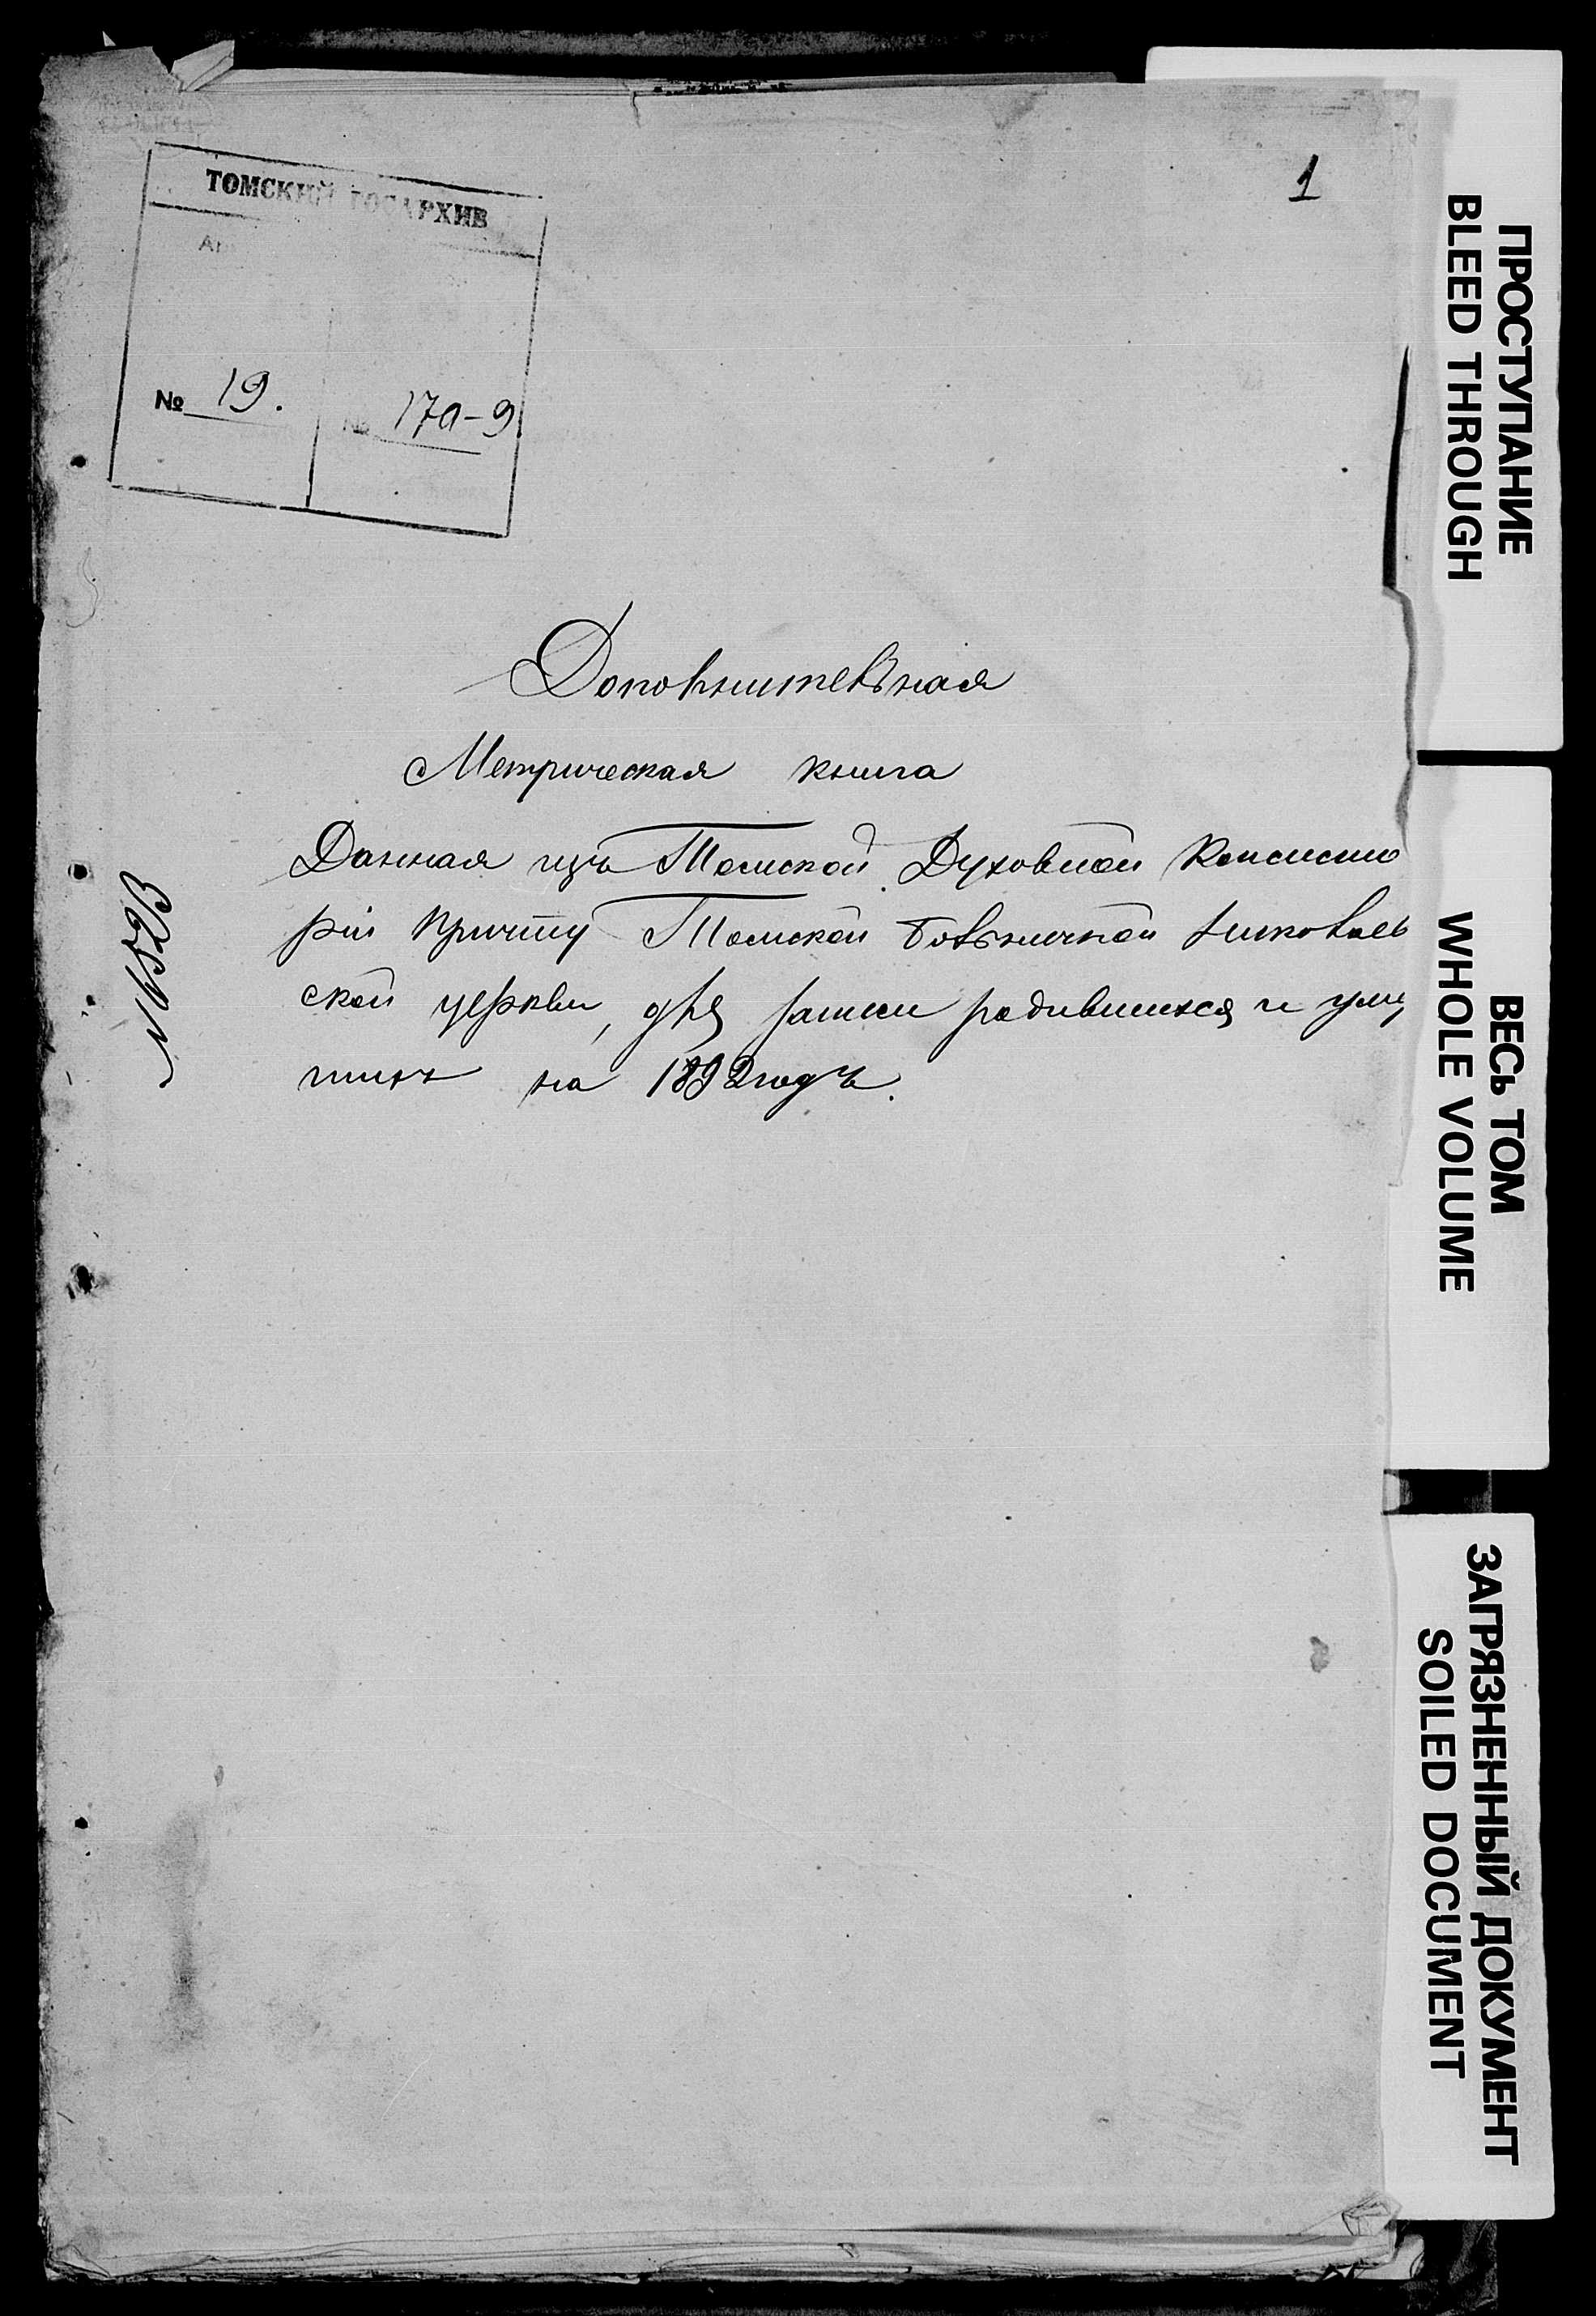 1
ТОМСКИЙ ГОСАРХИВ
№ 19.
№ 170-9
Дополнительная
Метрическая книга
Данная изъ Томской Духовной Консисто
ріи Причту Томской Больничной
ской церкви, для записи родившихся и уме
шихъ на 1892 годъ.
ПРОСТУПАНИЕ
BLEED THROUGH
ВЕСЬ ТОМ
WHOLE VOLUME
ЗАГРЯЗНЕННЫЙ ДОКУМЕНТ
SOILED DOCUMENT